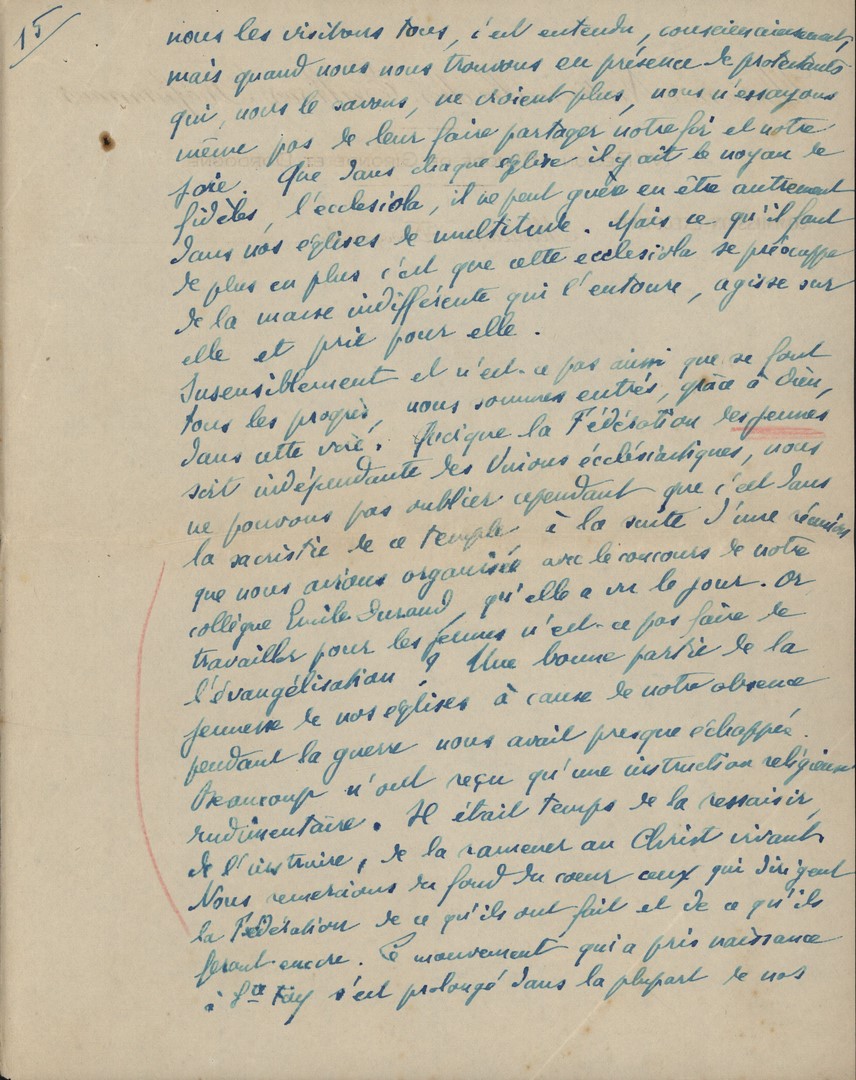 15
nous les visitons tous, c'est entendu, consciencieusement,
mais quand nous nous trouvons en présence de protestants
qui, nous le savons, ne croient plus, nous n'essayons
même pas de leur faire partager notre foi et notre
joie. Que dans chaque église il y ait le noyau de
fidèles, l'ecclesiola, il ne peut guère en être autrement
dans nos églises de multitude. Mais ce qu'il faut
de plus en plus c'est que cette ecclesiola se préoccupe
de la masse indifférente qui l'entoure, agisse sur
elle et prie pour elle.
Insensiblement et n'est-ce pas ainsi que se font
tous les progrès, nous sommes entrés, grâce à Dieu,
dans cette voie. Quoique la Fédération des jeunes
soit indépendante des Unions écclésiastiques, nous
ne pouvons pas oublier cependant que c'est dans
la sacristie de ce temple, à la suite d'une réunion
que nous avions organisée avec le concours de notre
collègue Emile Durand, qu'elle a vu le jour. Or
travailler pour les jeunes n'est-ce pas faire de
l'évangélisation ? Une bonne partie de la
jeunesse de nos églises à cause de notre absence
pendant la guerre nous avait presque échappée.
Beaucoup n'ont reçu qu'une instruction religieuse
rudimentaire. Il était temps de la ressaisir,
de l'instruire, de la ramener au Christ vivant.
Nous remercions du fond du coeur ceux qui dirigent
la Fédération de ce qu'ils ont fait et de ce qu'ils
feront encore. Ce mouvement qui a pris naissance
à Ste Foy s'est prolongé dans la plupart de nos